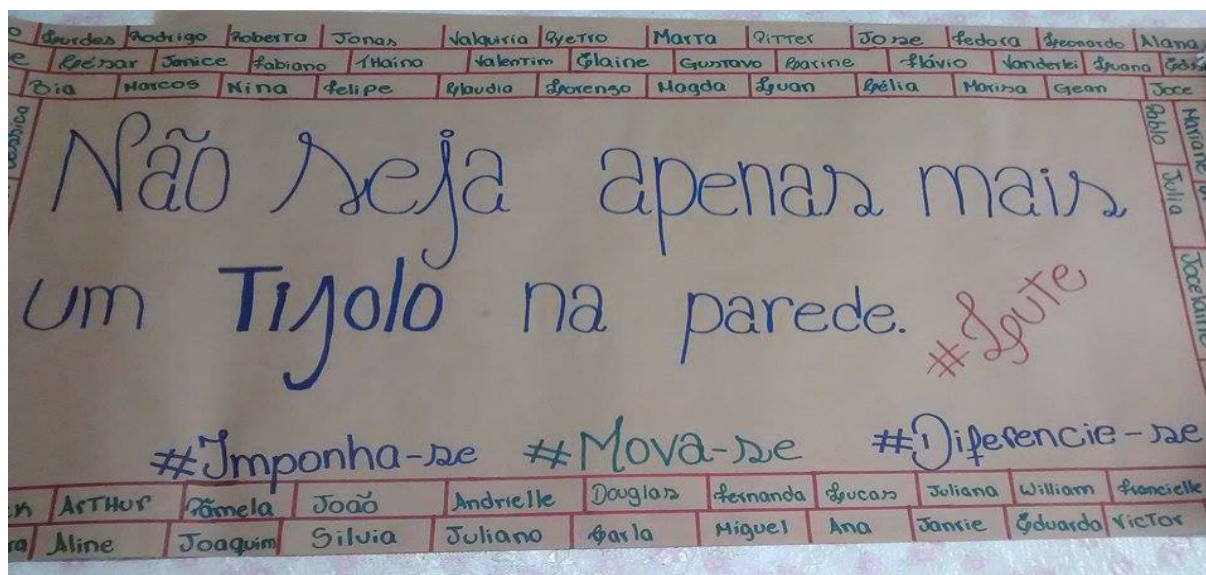 Lourdes Rodrigo Roberto Jonas Valquiria Pyetro Marta Pitter Jose Fedora Leonardo Alana
César Janice Fabiano THaina Valentim Glaine Gustavo Karine Flávio Vanderlei Luana
Bia Marcos Nina Felipe Claudia Lorenzo Magda Luan Célia Marisa Gean Joce
Jéssica
Pablo Julia Jocelaine
Mariane
Não seja apenas mais
um Tijolo na parede.
#Lute
#Imponha-se #Mova-se #Diferencie-se
ARTHUR Pâmela João Andrielle Douglas Fernanda Lucas Juliana William Francielle
Aline Joaquim Silvia Juliano Carla Miguel Ana Janrie Eduardo Victor